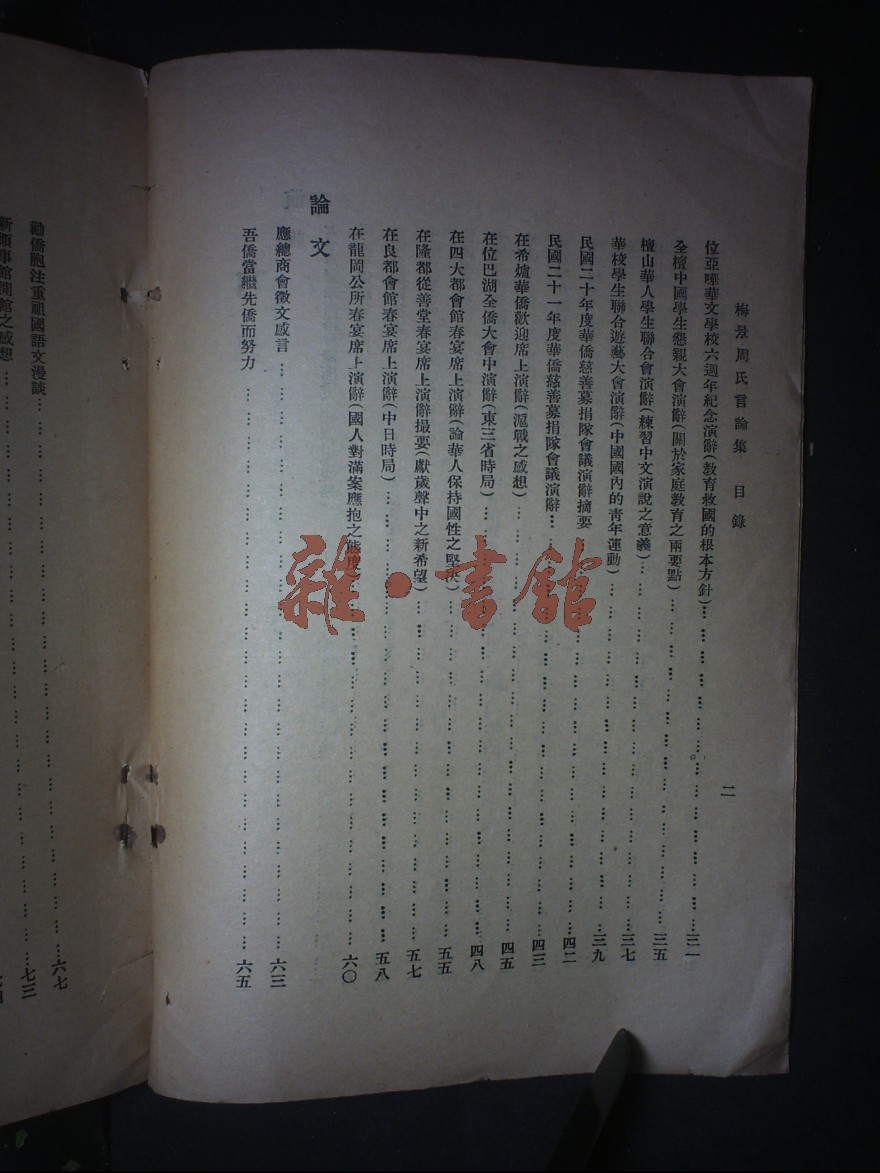 梅景周氏言論集 目錄
二
位亞嘩華文學校六週年紀念演辭(教育救國的根本方針)……三一
全檀中國學生懇親大會演辭(關於家庭教育之兩要點)……三五
檀山華人學生聯合會演辭(練習中文演說之意義)……三七
華校學生聯合遊藝大會演辭(中國國內的青年運動)……三九
民國二十年度華僑慈善募捐隊會議演辭摘要……四二
民國二十一年度華僑慈善募捐隊會議演辭……四三
在希爐華僑歡迎席上演辭(滬戰之感想)……四五
在位巴湖全僑大會中演辭(東三省時局)……四八
在四大都會館春宴席上演辭(論華人保持國性之堅決)……五五
在隆都從善堂春宴席上演辭撮要(獻歲聲中之新希望)……五七
在良都會館春宴席上演辭(中日時局)……五八
在龍岡公所春宴席上演辭(國人對滿案應抱之態度)……六〇
論文
應總商會徵文感言……六三
吾僑當繼先僑而努力……六五
勸僑胞注重祖國語文漫談……六七
新領事館開館之感想……七三
雜·書館